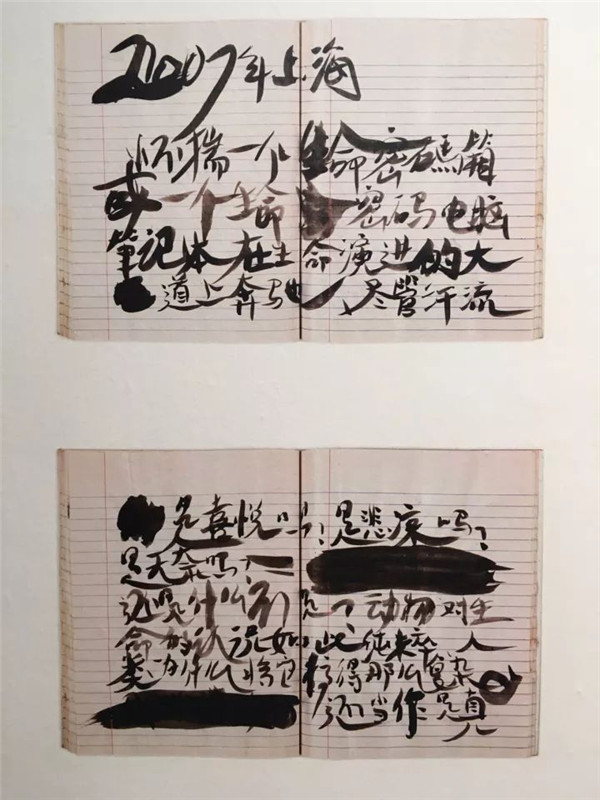 2007年上海
怀揣一个生命密码箱
或一个生命密码电脑
笔记本在生命演进的大
道上奔驰，尽管汗流
是喜悦吗？是悲哀吗？
是无奈吗？
还是什么别 动物对生
命的认识如此纯粹 人
类为什么将它搞得那么复杂
还当作是真